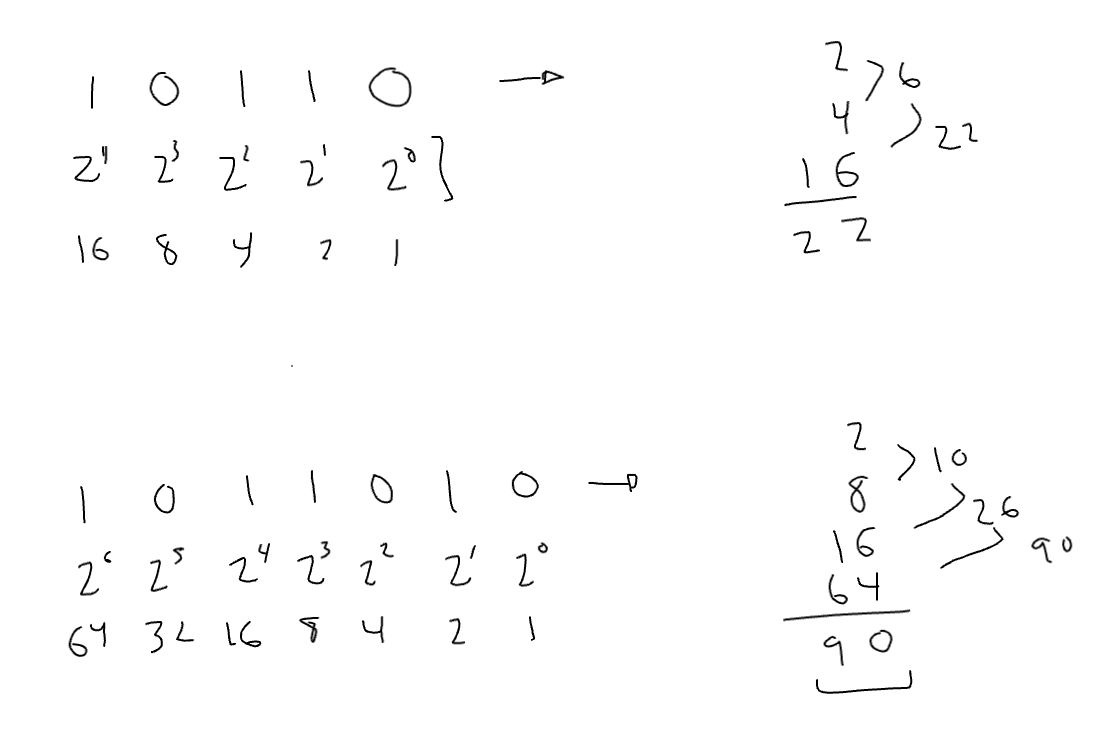 1 0 1 1 0 →
2⁴ 2³ 2² 2¹ 2⁰ }
16 8 4 2 1
2 > 6
4 > 22
16
22
1 0 1 1 0 1 0 →
2⁶ 2⁵ 2⁴ 2³ 2² 2¹ 2⁰
64 32 16 8 4 2 1
2 > 10
8 > 26
16 > 90
64
90